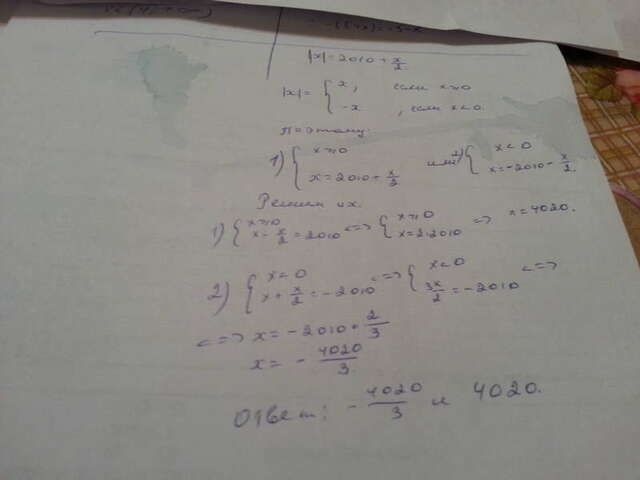 |x| = 2010 + x/2
|x| = { x, если x ≥ 0
-x, если x < 0.
Поэтому:
1) { x ≥ 0
x = 2010 + x/2
или 2) { x < 0
x = -2010 - x/2
Решим их.
1) { x ≥ 0
x - x/2 = 2010 <=> { x ≥ 0
x = 2·2010 => x = 4020.
2) { x < 0
x + x/2 = -2010 <=> { x < 0
3x/2 = -2010 <=>
<=> x = -2010 · 2/3
x = - 4020/3
Ответ: - 4020/3 и 4020.